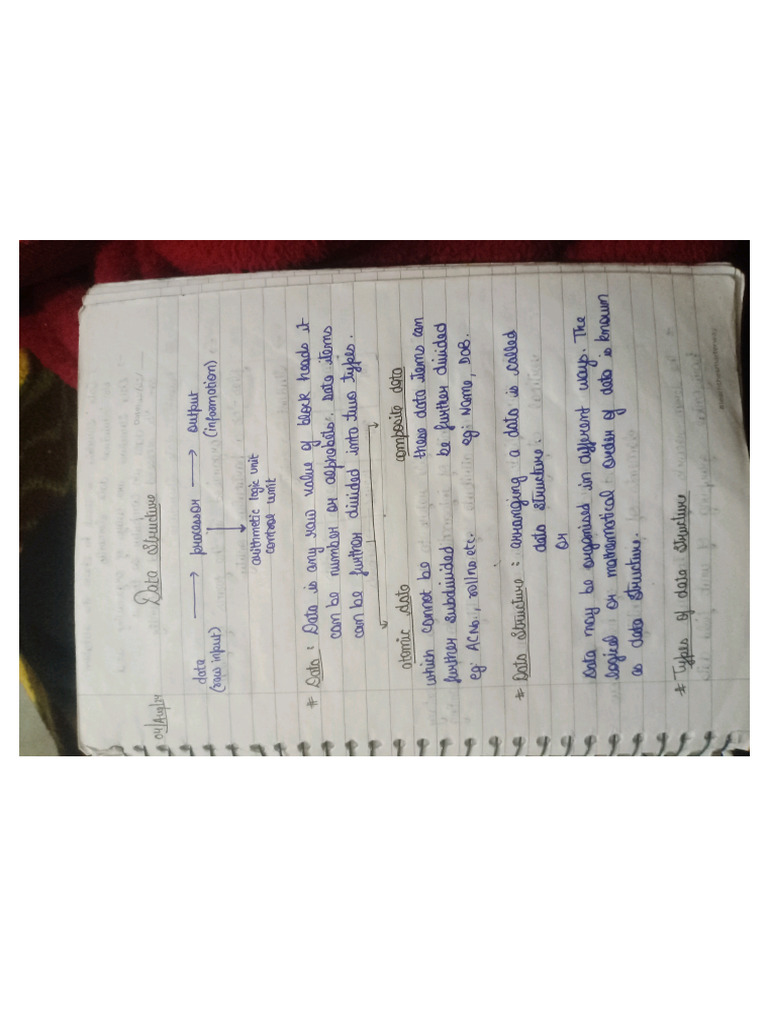 04/Aug/14
Data Structure
data → processor → output
(raw input) (information)
arithmetic logic unit
control unit
# Data : Data is any raw value of block heads it
can be number or alphabets. Data items
can be further divided into two types.
atomic data composite data
which cannot be these data items can
further subdivided be further divided
eg: ACNo., rollno etc. eg: Name, DOB.
# Data Structure : arranging a data is called
data structure.
or
Data may be organised in different ways. The
logical or mathematical order of data is known
as data structure.
# Types of data structure